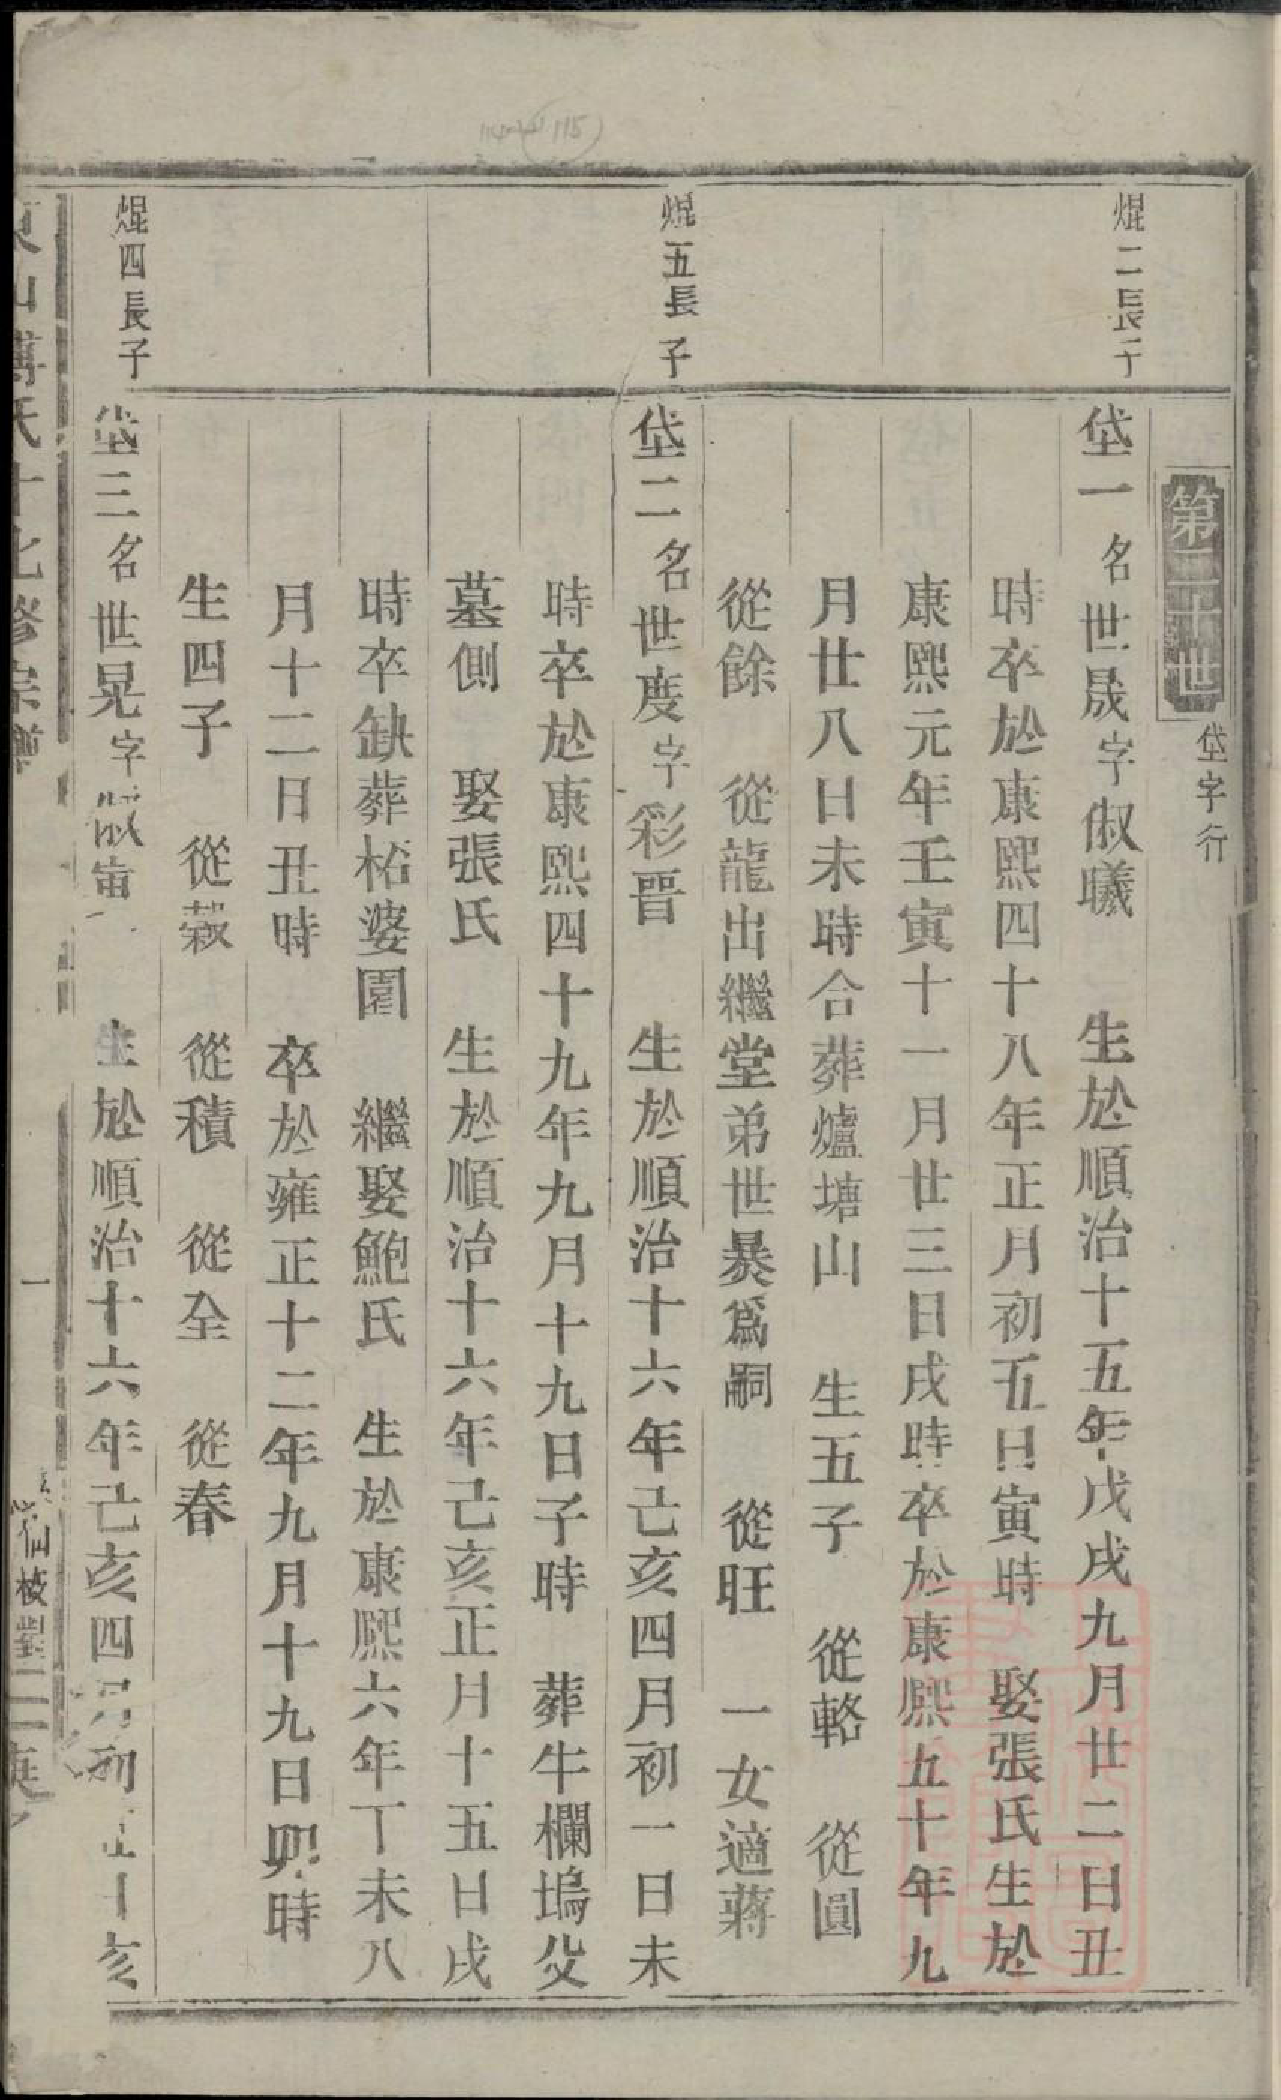 第二十世
垈字行
焜二長子
垈一名世晟字俶曦　生於順治十五年戊戌九月廿二日丑
時卒於康熙四十八年正月初五日寅時　娶張氏生於
康熙元年壬寅十一月廿三日戌時卒於康熙五十年九
月廿八日未時合葬爐塘山　生五子　從輅　從圓
從餘　從龍出繼堂弟世暴爲嗣　從旺　一女適蔣
焜五長子
垈二名世度字彩晉　生於順治十六年己亥四月初一日未
時卒於康熙四十九年九月十九日子時　葬牛欄塢父
墓側　娶張氏　生於順治十六年己亥正月十五日戌
時卒缺葬柘婆園　繼娶鮑氏　生於康熙六年丁未八
月十二日丑時　卒於雍正十二年九月十九日卯時
生四子　從穀　從積　從全　從春
焜四長子
垈三名世晃字俶　生於順治十六年己亥四月初　日亥
東山傅氏十七修宗譜
一